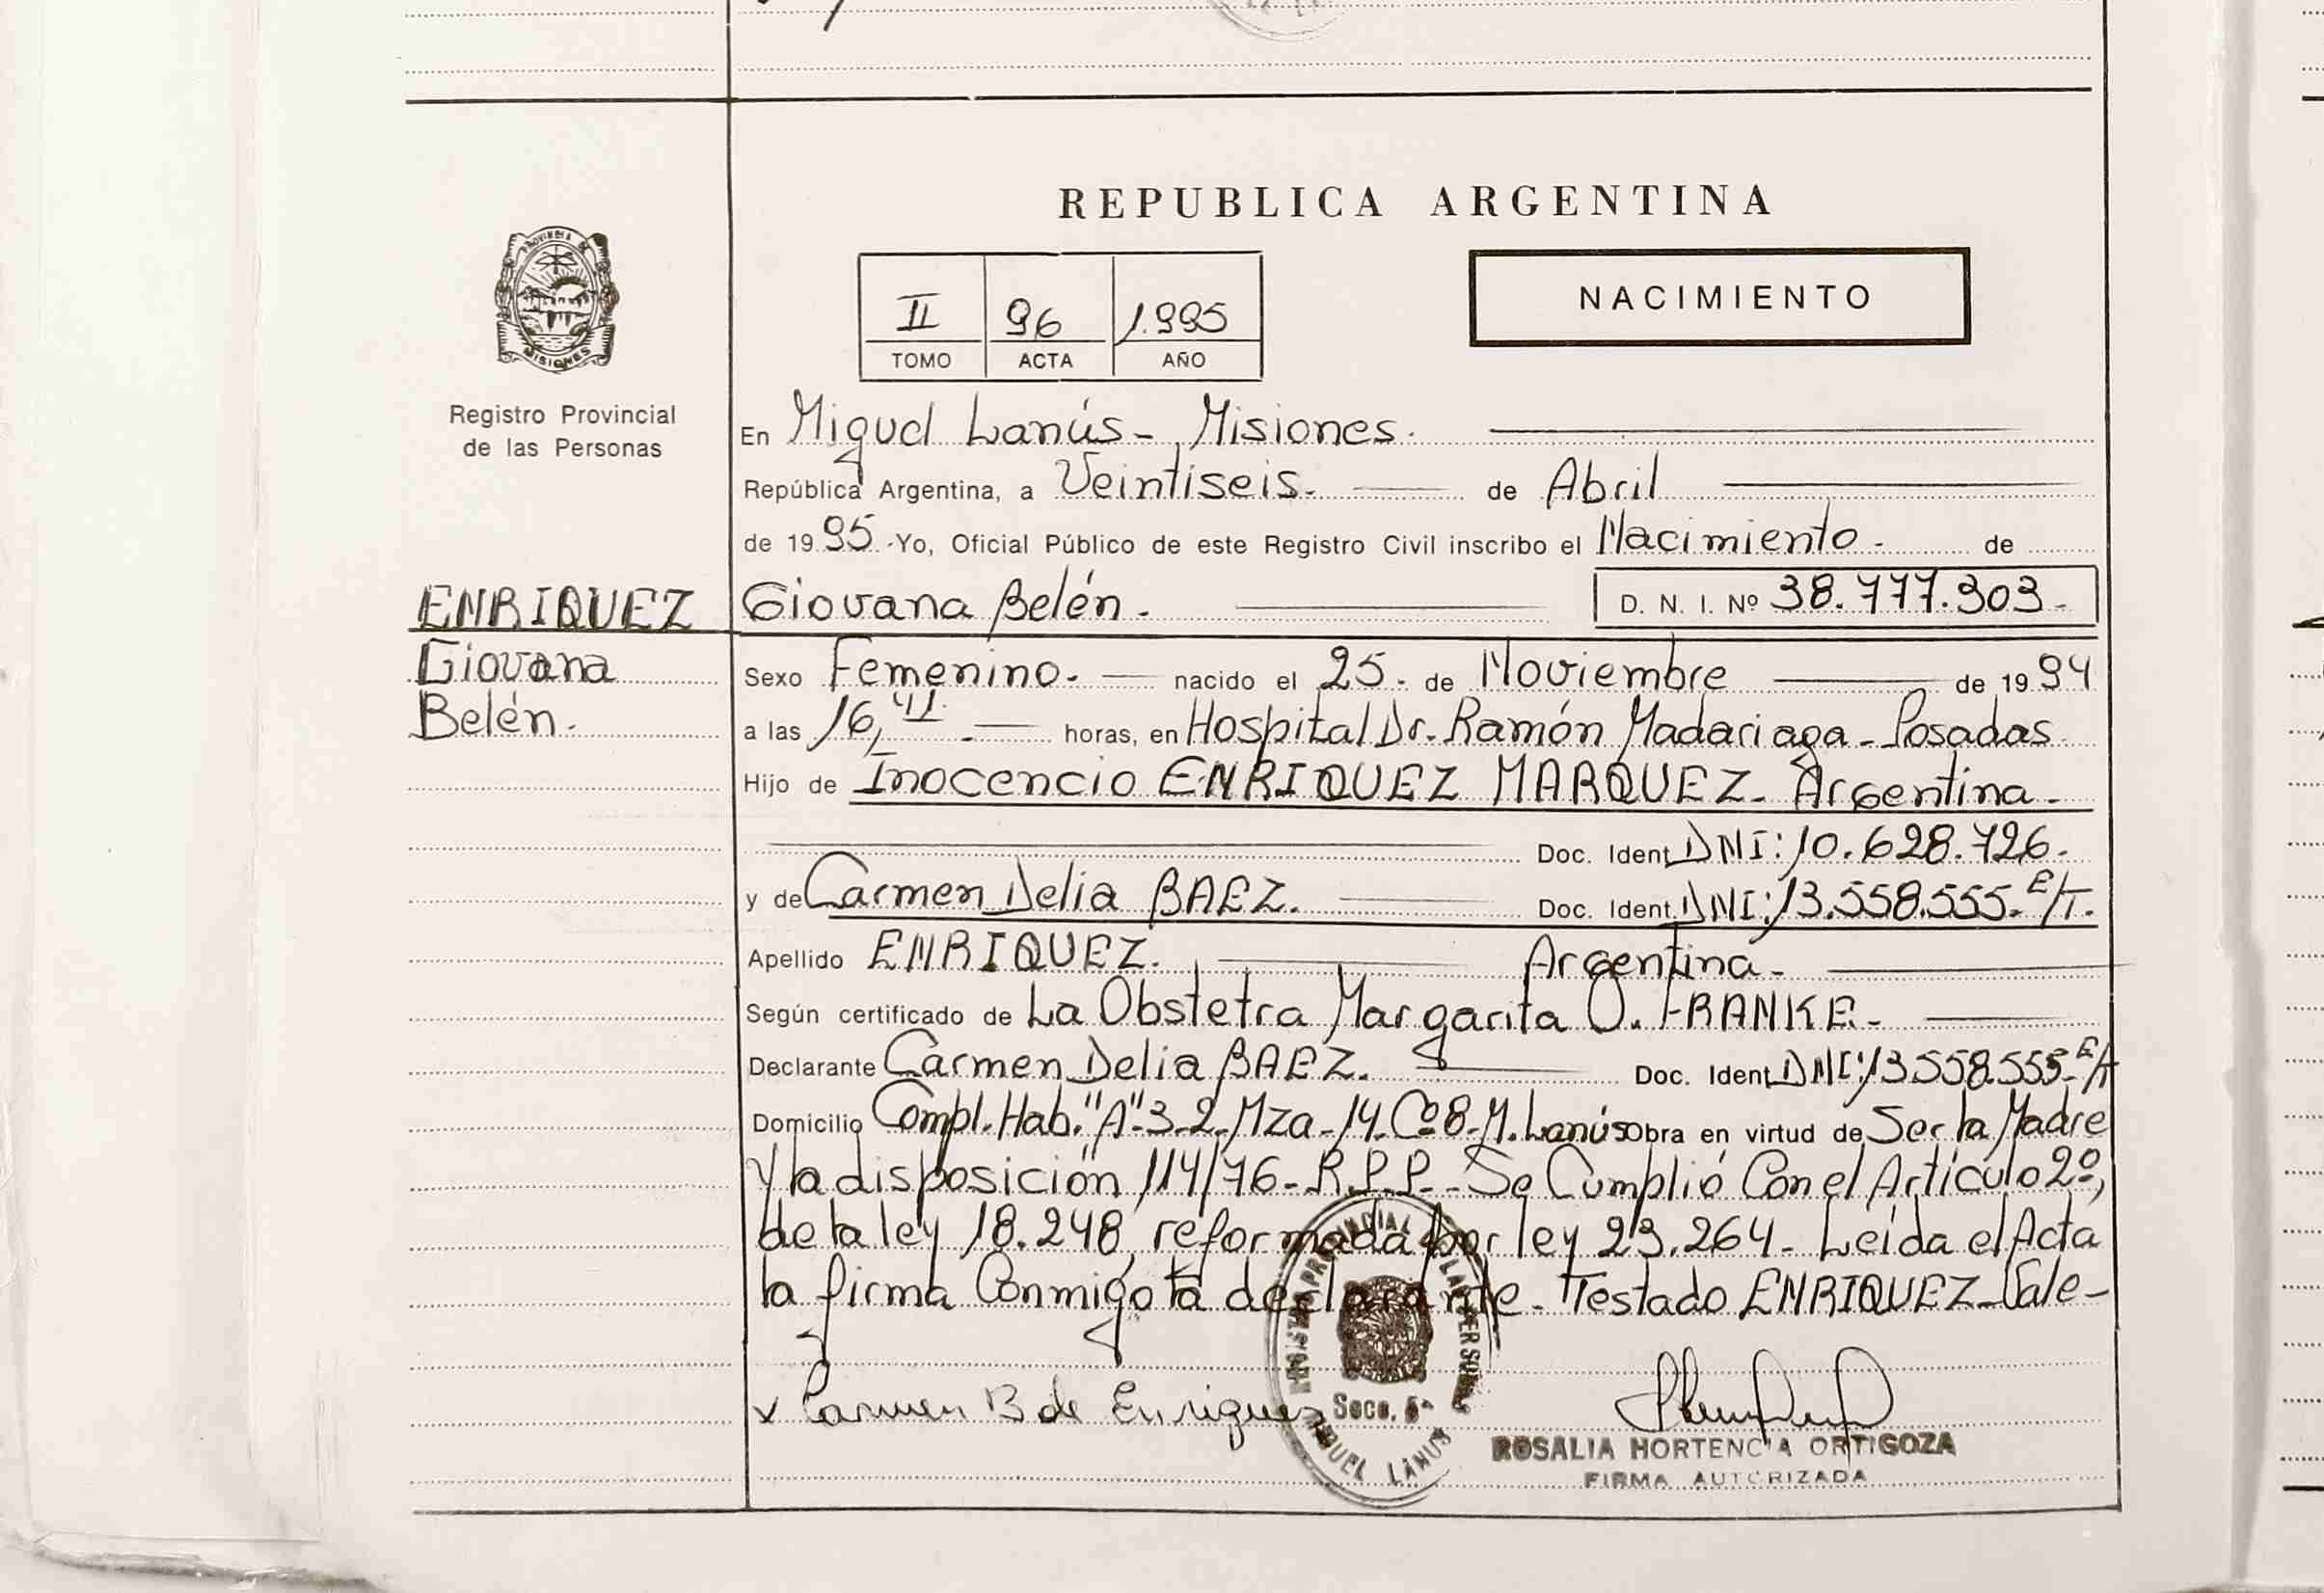 REPUBLICA ARGENTINA
PROVINCIA DE
MISIONES
Registro Provincial
de las Personas
II 96 1.995
TOMO ACTA AÑO
NACIMIENTO
En Miguel Lanús - Misiones.
República Argentina, a Veintiseis. de Abril
de 1995 - Yo, Oficial Público de este Registro Civil inscribo el Nacimiento - de
ENRIQUEZ Giovana Belén. D. N. I. Nº 38.777.303-
Giovana Sexo Femenino. nacido el 25. de Noviembre de 1994
Belén. a las 16,41. horas, en Hospital Dr. Ramón Madariaga - Posadas
Hijo de Inocencio ENRIQUEZ MARQUEZ - Argentina -
Doc. Ident. DNI: 10.628.726.
y de Carmen Delia BAEZ. Doc. Ident. DNI: 13.558.555. E/T.
Apellido ENRIQUEZ. Argentina -
Según certificado de La Obstetra Margarita O. FRANKE -
Declarante Carmen Delia BAEZ. Doc. Ident. DNI: 13.558.555 - E/T
Domicilio Compl. Hab. "A" 3-2. Mza - 14. Cº 8 - M. Lanús obra en virtud de Ser la Madre
y la disposición 114/76 - R.P.P. - Se Cumplió Con el Artículo 2º,
de la ley 18.248, reformada por ley 23.264 - Leída el Acta
la firma Conmigo la declarante - Testado ENRIQUEZ - Vale -
x Carmen B de Enriquez
REGISTRO PROVINCIAL DE LAS PERSONAS
Secc. 5ª
MIGUEL LANUS
ROSALIA HORTENCIA ORTIGOZA
FIRMA AUTORIZADA